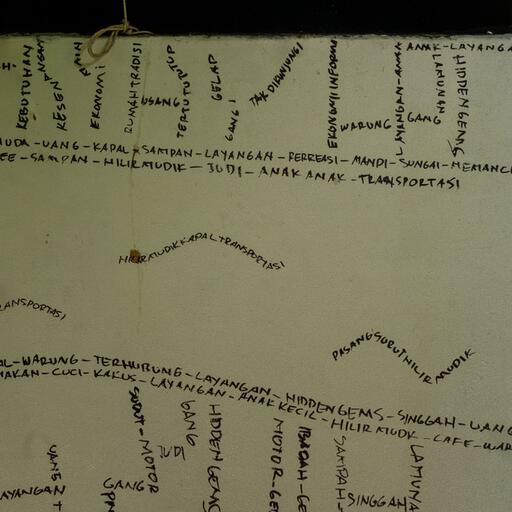 KEBUTUHAN
KESEN
EKONOMI
RUMAH TRADISI
USANG
TERTUTUTUP
GELAP
GANG
TAK DIKUNJUNGI
EKONOMI INFORMA
WARUNG
GANG
LAMUNAN
HIDDEN GEMS
ANAK-LAYANGA
UDA-UANG-KAPAL-SAMPAN-LAYANGAN-REKREASI-MANDI-SUNGAI-MEMANC
EE-SAMPAN-HILIR MUDIK-JUDI-ANAK ANAK-TRANSPORTASI
HILIR MUDIK KAPAL TRANSPORTASI
RANSPORTASI
PASANG SURUT HILIR MUDIK
AL-WARUNG-TERHUBUNG-LAYANGAN-HIDDEN GEMS-SINGGAH-UANG
MAKAN-CUCI-KAKUS-LAYANGAN-ANAK KECIL-HILIR MUDK-CAFE-WAR
SUDUT-MOTOR
GANG
JUDI
HIDDEN GEMS
MOTOR-GE
IBADAH-GE
SAMPAH-
SINGGAH
LAMUNA
UANG
AYANGAN
GANG